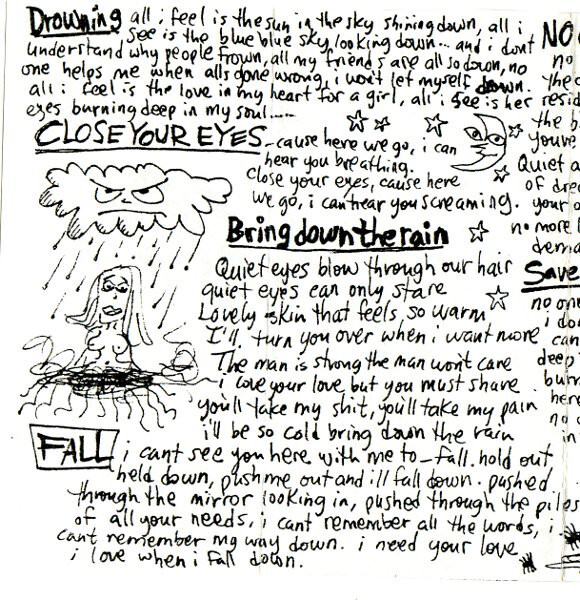 Drowning all i feel is the sun in the sky shining down, all i
see is the blue blue sky, looking down... and i dont
understand why people frown, all my friends are all so down, no
one helps me when alls gone wrong, i won't let myself down.
all i feel is the love in my heart for a girl, all i see is her
eyes burning deep in my soul......
CLOSE YOUR EYES - cause here we go, i can
hear you breathing.
Close your eyes, cause here
we go, i can hear you screaming.
Bring down the rain
Quiet eyes blow through our hair
quiet eyes can only stare
Lovely skin that feels so warm
I'll turn you over when i want more
The man is strong the man won't care
i love your love but you must share
you'll take my shit, you'll take my pain
i'll be so cold bring down the rain
FALL i cant see you here with me to - fall. hold out
held down, push me out and ill fall down. pushed
through the mirror looking in, pushed through the piles
of all your needs, i cant remember all the words, i
cant remember my way down. i need your love
i love when i fall down.
NO
no
the
resid
the b
youve
Quiet a
of dre
your
no more
dema
Save
no one
i do
can
deep
burn
here
no
in